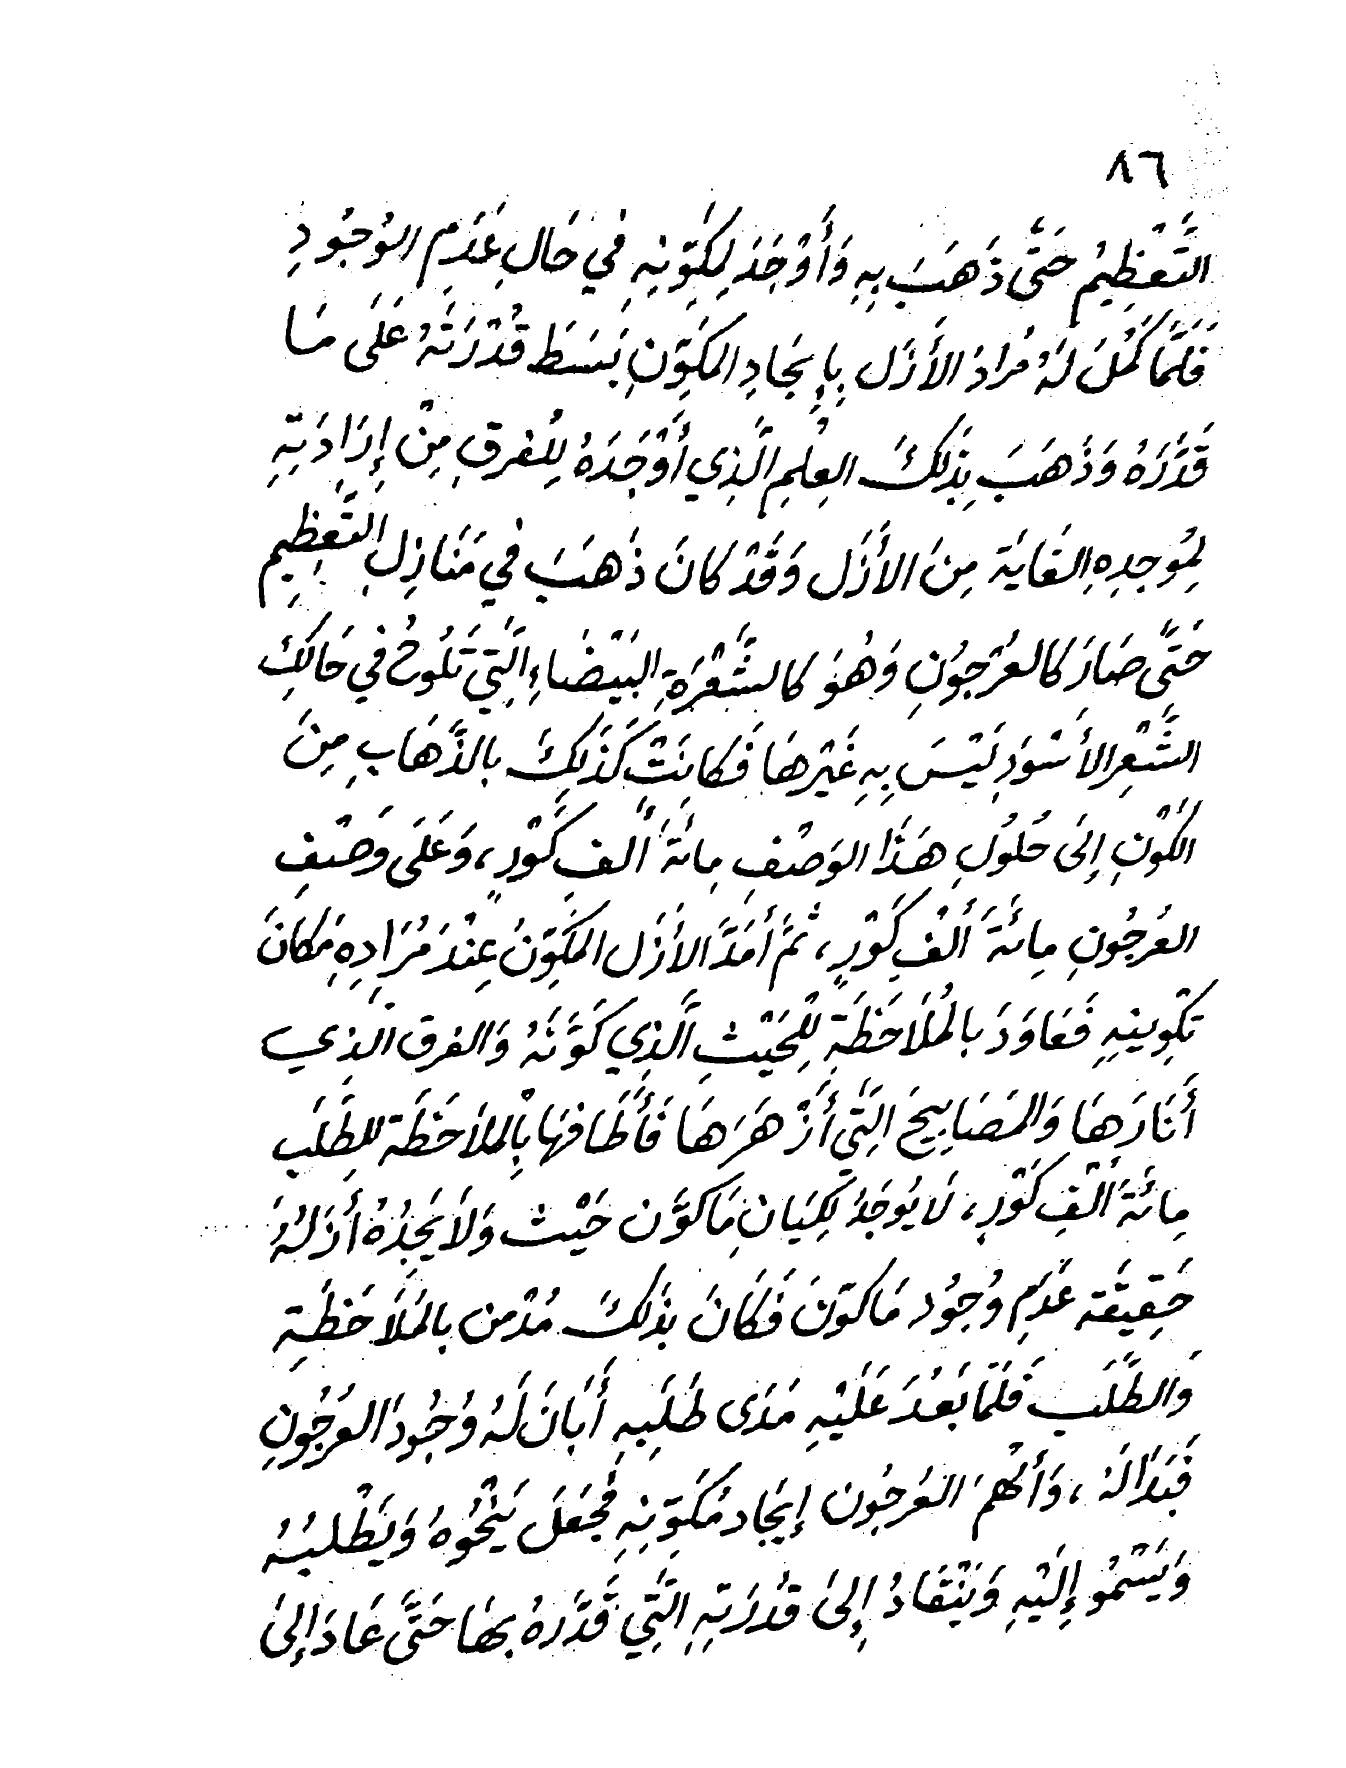 ٨٦
التَّعْظِيمُ حَتَّى ذَهَبَ بِهِ وَأَوْجَدَ لِمُكَوِّنِهِ فِي حَالِ عَدَمِ الوُجُودِ
فَلَمَّا كَمُلَ لَهُ مُرَادُ الأَزَلِ بِإِيجَادِ المُكَوَّنِ بَسَطَ قُدْرَتَهُ عَلَى مَا
قَدَّرَهُ وَذَهَبَ بِذَلِكَ العِلْمِ الَّذِي أَوْجَدَهُ لِلْفرقِ مِنْ إِرَادَتِهِ
لِمُوجِدِهِ الغَايَة مِنَ الأَزَلِ وَقَدْ كَانَ ذَهَبَ فِي مَنَازِلِ التَّعْظِيمِ
حَتَّى صَارَ كَالعُرْجُونِ وَهُوَ كَالشَّعْرَةِ البَيْضَاءِ الَّتِي تَلُوحُ فِي حَالِكِ
الشَّعْرِ الأَسْوَدِ لَيْسَ بِهِ غَيْرهَا فَكَانَتْ كَذَلِكَ بالذَّهَابِ مِنَ
الكَوْنِ إِلَى حُلُولِ هَذَا الوَصْفِ مِائَةَ أَلفِ كَوْرٍ، وَعَلَى وَصْفِ
العُرجُونِ مِائَةَ أَلْفِ كَوْرٍ، ثُمَّ أَمَدَّ الأَزَلِ المُكَوِّنُ عِنْدَ مُرَادِهِ مَكَانَ
تَكْوِينِهِ فَعَاوَدَ بالمُلَاحَظَةِ لِلْحَيْثِ الَّذِي كَوَّنَهُ وَالفرق الَّذِي
أَنَارَهَا وَالمَصَابِيحَ الَّتِي أَزْهَرَهَا فَأَطَافهَا بِالملاَحَظَة للطَّلَبِ
مِائَةَ أَلْفِ كَوْرٍ، لَا يُوجَدُ لِكيَانِ مَا كَوَّن حَيْث وَلَا يَجِدُهُ أَزَلهُ
حَقِيقَة عَدَمِ وُجُود مَا كوّنَ فَكَانَ بذَلكَ مُدْمن بالمُلَاحَظَةِ
وَالطَّلَب فَلَمَّا بَعُدَ عَلَيْهِ مَدَى طَلَبِهِ أَبَانَ لَهُ وُجُودَ العُرجُونِ
فَبَدَا لَهُ، وَأَلهَمَ العُرجُون إِيجَاد مُكَوِّنِهِ فَجَعَلَ يَنْحُوهُ وَيَطْلبُهُ
وَيَسْمُو إِلَيْهِ وَيَنْقَادُ إِلَى قُدْرَتِهِ الَّتِي قَدَّرَهُ بِهَا حَتَّى عَادَ إِلَى